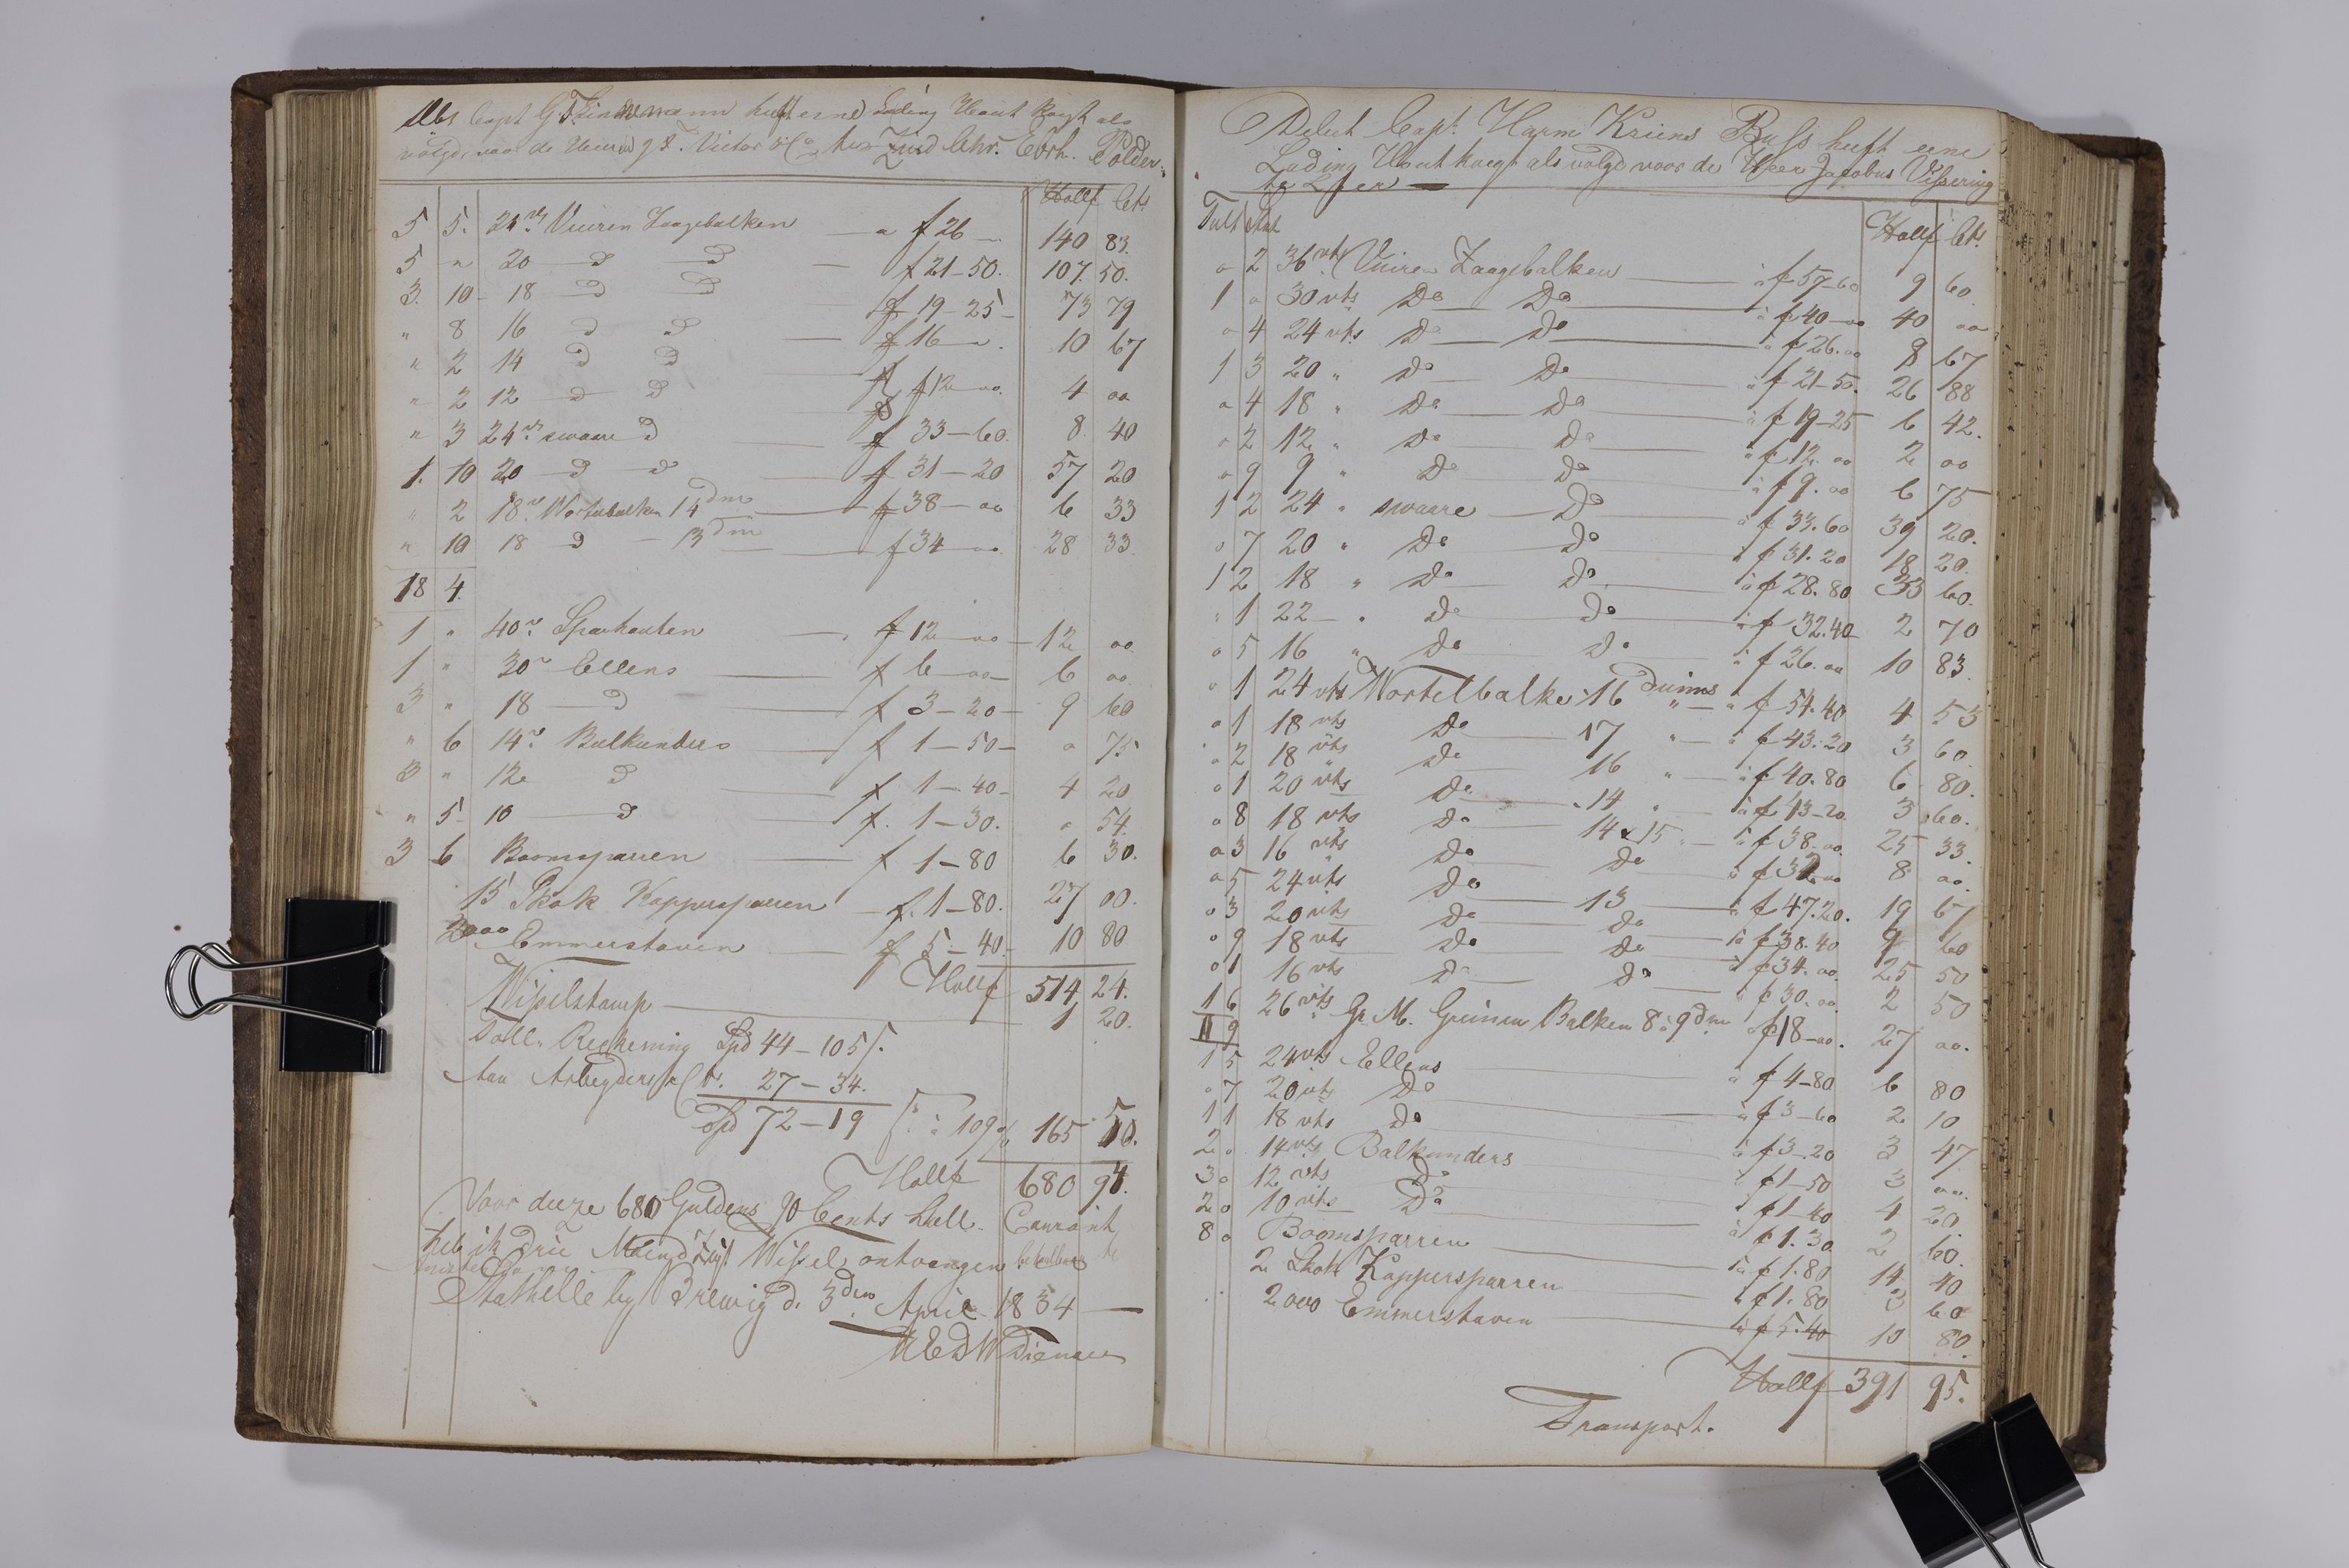 Capt G. heeft eene Lading Hout kogt als
volgd, voor de Heeren Victor & Co ter Zuid Chr. Eberh. Polder
Hollf Cts
5 5. 24 vt Vuiren Zaagebalken a f 26 — 140 83.
5 " 20 D D f 21-50. 107. 50.
3. 10 - 18 D D f 19-25 - 73 79
" 8 16 D D f 16 — " . 10 67
" 2 14 D D f
" 2 12 D D f 12 — oo. 4 oo
" 3 24 vt swaare D f 33-60. 8. 40
1. 10 20 D D f 31-20 57 20
" 2 18 vt Wortelbalken 14 dm f 38-oo 6 33
" 10 18 D - 13 dm f 34 oo 28 33
18 4.
1 " 40 vt Sparhouten f 12-oo - 12 oo.
1 " 30 vt Ellens f 6-oo- 6 oo.
3 " 18 D f 3-20- 9 60
" 6 14 vt Balkunders f 1-50- o 75
3 " 12 D f 1-40- 4 20
" 5 10 D f. 1-30. o 54.
3 6 Boomsparren f 1-80 6 30.
15 Skok Kappersparren f. 1-80. 27 00.
2000 Emmerstaven f 5-40- 10 80
Hollf 514 24.
Wisselstamp 1 20.
Toll. Rechening Spd 44-105 s.
Aan 27-34.
Spd 72-19 s. à 109 % 165 50.
Hollf 680 94.
Voor deeze 680 Guldens 90 Cents Holl. Courant
heb ik drie Maend Wissel ontvangen
Stathelle by Brewig d. 3den April 1834 —
Debet Capt. Harm Kriens Buss heeft eene
Lading Hout kogt als volgt voor de Heer Jacobus Vissering
te Leer —
Tult Stk Hollf Cts.
o 2 36 vt Vuiren Zaagebalken à f 57-60 9 60.
1 o 30 vts Do Do à f 40-oo 40 oo
o 4 24 vts Do Do à f 26.oo 8 67
1 3 20 " Do Do à f 21-50. 26 88
o 4 18 " Do Do à f 19-25 6 42.
o 2 12 " Do Do à f 12.oo 2 oo
o 9 9 " Do Do à f 9.oo 6 75
1 2 24 " swaare Do à f 33.60 39 20.
o 7 20 " Do Do à f 31.20 18 20.
1 2 18 " Do Do à f 28.80 33 60.
" 1 22 " Do Do à f 32.40 2 70
o 5 16 " Do Do à f 26.oo 10 83.
o 1 24 vts Wortelbalke 16 duims " à f 54.40 4 53
o 1 18 vts Do 17 " à f 43.20 3 60.
" 2 18 vts Do 16 " à f 40.80 6 80.
o 1 20 vts Do 14 " à f 43-20. 3 60.
o 8 18 vts Do 14 à 15 " à f 38.oo. 25 33.
o 3 16 vts Do Do à f 32.oo 8 oo.
o 5 24 vts Do 13 à f 47.20. 19 67
o 3 20 vts Do Do à f 38.40 9 60
o 9 18 vts Do Do à f 34.oo. 25 50
o 1 16 vts Do Do à f 30.oo. 2 50
1 6 26 vts Gr M. Greinen Balken 8 à 9 dm à f 18-oo. 27 oo.
11 9
1 5 24 vts Ellens à f 4-80 6 80
o 7 20 vts Do à f 3-60 2 10
1 1 18 vts Do à f 3-20 3 47
2 o 14 vts Balkunders à f 1-50 3 oo.
3 o 12 vts Do à f 1-40 4 20
2 o 10 vts Do à f 1.30. 2 60.
8 o Boomsparren à f 1.80 14 40
2 Skok Kappersparren à f 1.80 3 60
2000 Emmerstaven à f 5.40 10 80.
Hollf 391 95.
Transport.